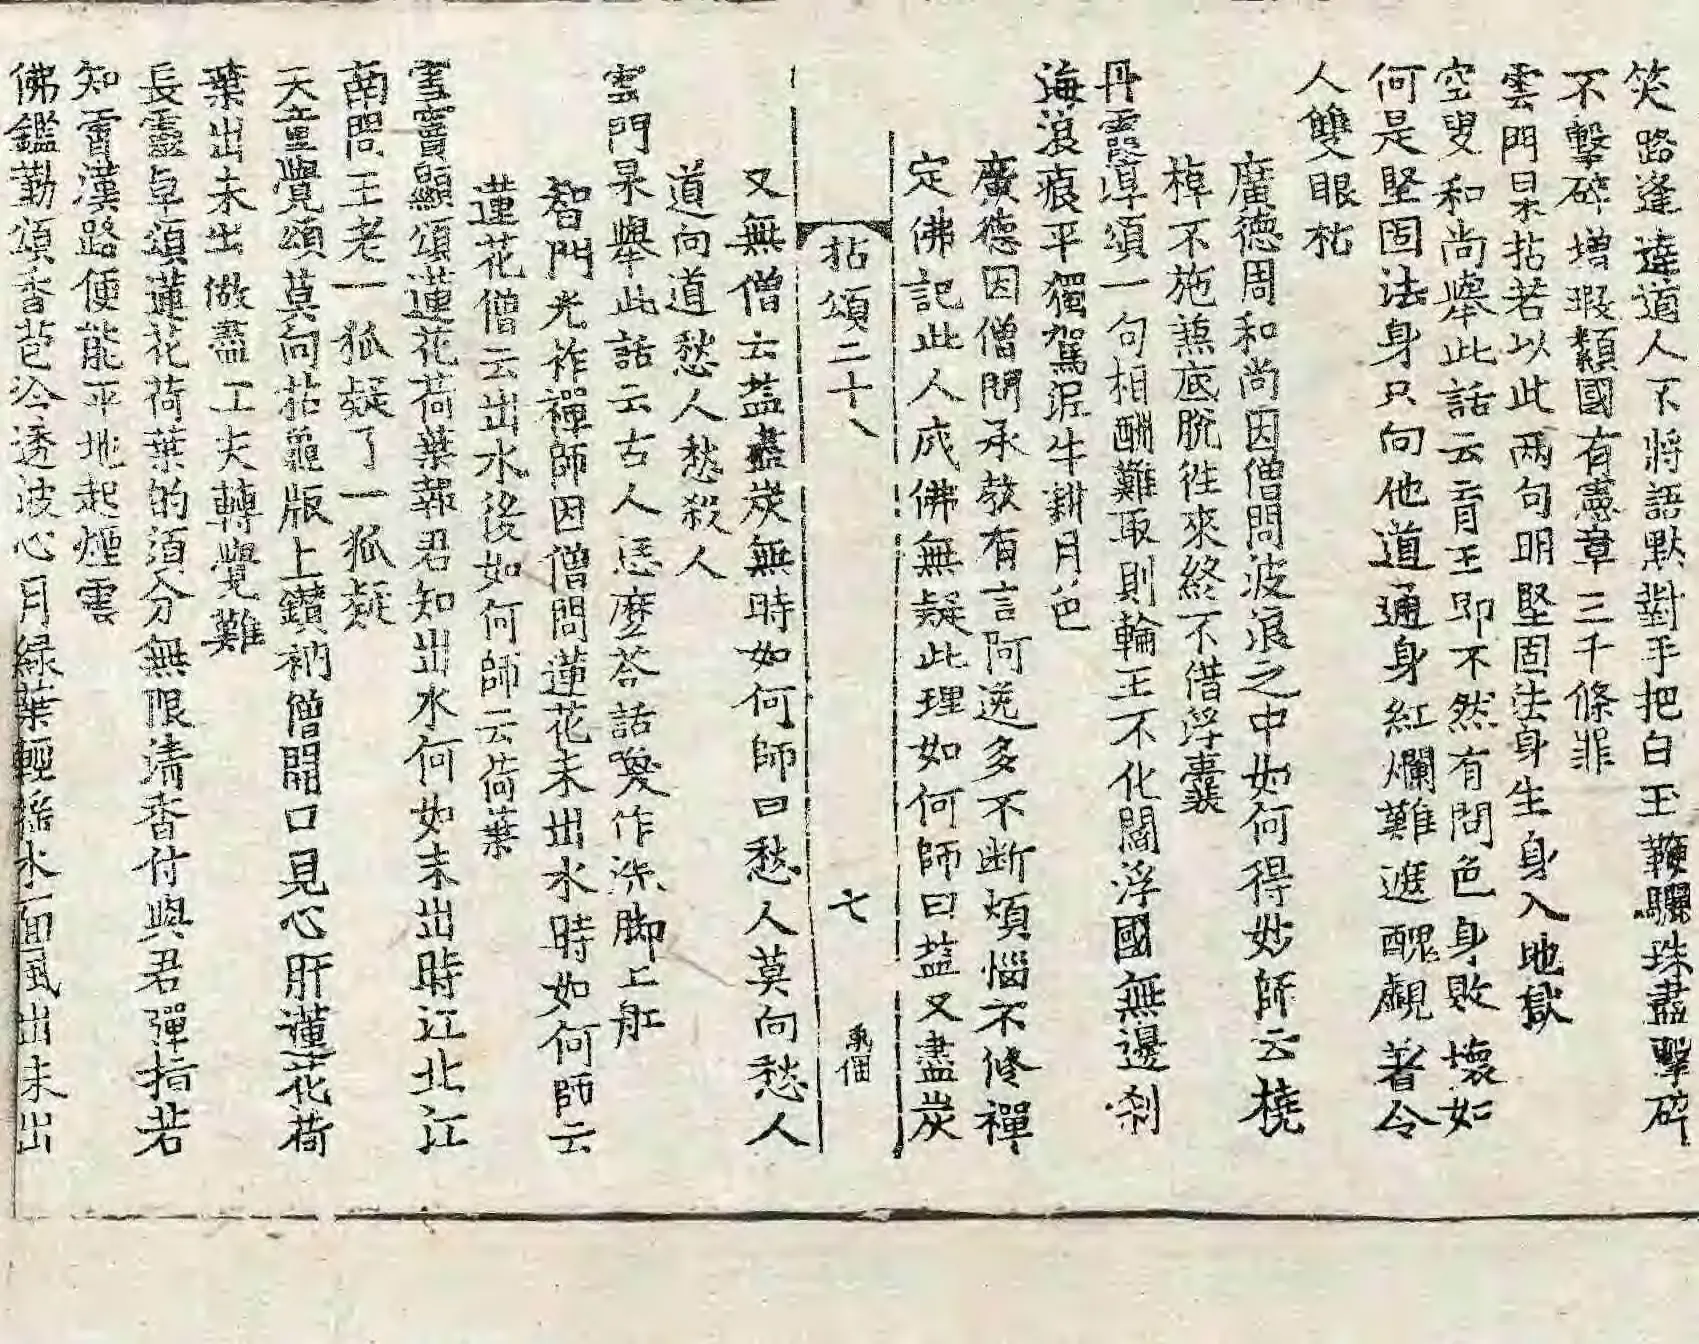 笑路逢達道人不將語默對手把白玉鞭驪珠盡擊碎
不擊碎增瑕纇國有憲章三千條罪
雲門杲拈若以此两句明堅固法身生身入地獄
空叟和尚舉此話云育王即不然有問色身敗壞如
何是堅固法身只向他道通身紅爛難遮醜覷著令
人雙眼枯
廣德周和尚因僧問波浪之中如何得妙師云橈
棹不施蒸底脫徃來終不借浮囊
丹霞淳頌一句相酬難取則輪王不化閻浮國無邊刹
海浪痕平獨駕泥牛耕月色
廣德因僧問承教有言阿逸多不断煩惱不修禪
定佛記此人成佛無疑此理如何師曰盐又盡炭
拈頌二十八 七
又無僧云盐盡炭無時如何師曰愁人莫向愁人
道向道愁人愁殺人
雲門杲舉此話云古人恁麽荅話喚作㴱脚上舡
智門光祚禪師因僧問蓮花未出水時如何師云
蓮花僧云出水後如何師云荷葉
雪竇顯頌蓮花荷葉報君知出水何如未出時江北江
南問王老一狐疑了一狐疑
天童覺頌莫向拈龜版上鑽衲僧開口見心肝蓮花荷
葉出未出做盡工夫轉覺難
長靈卓頌蓮花荷葉的須分無限淸香付與君彈指若
知霄漢路便能平地起煙雲
佛鑑勤頌香苞冷透波心月緑葉輕揺水面風出未出